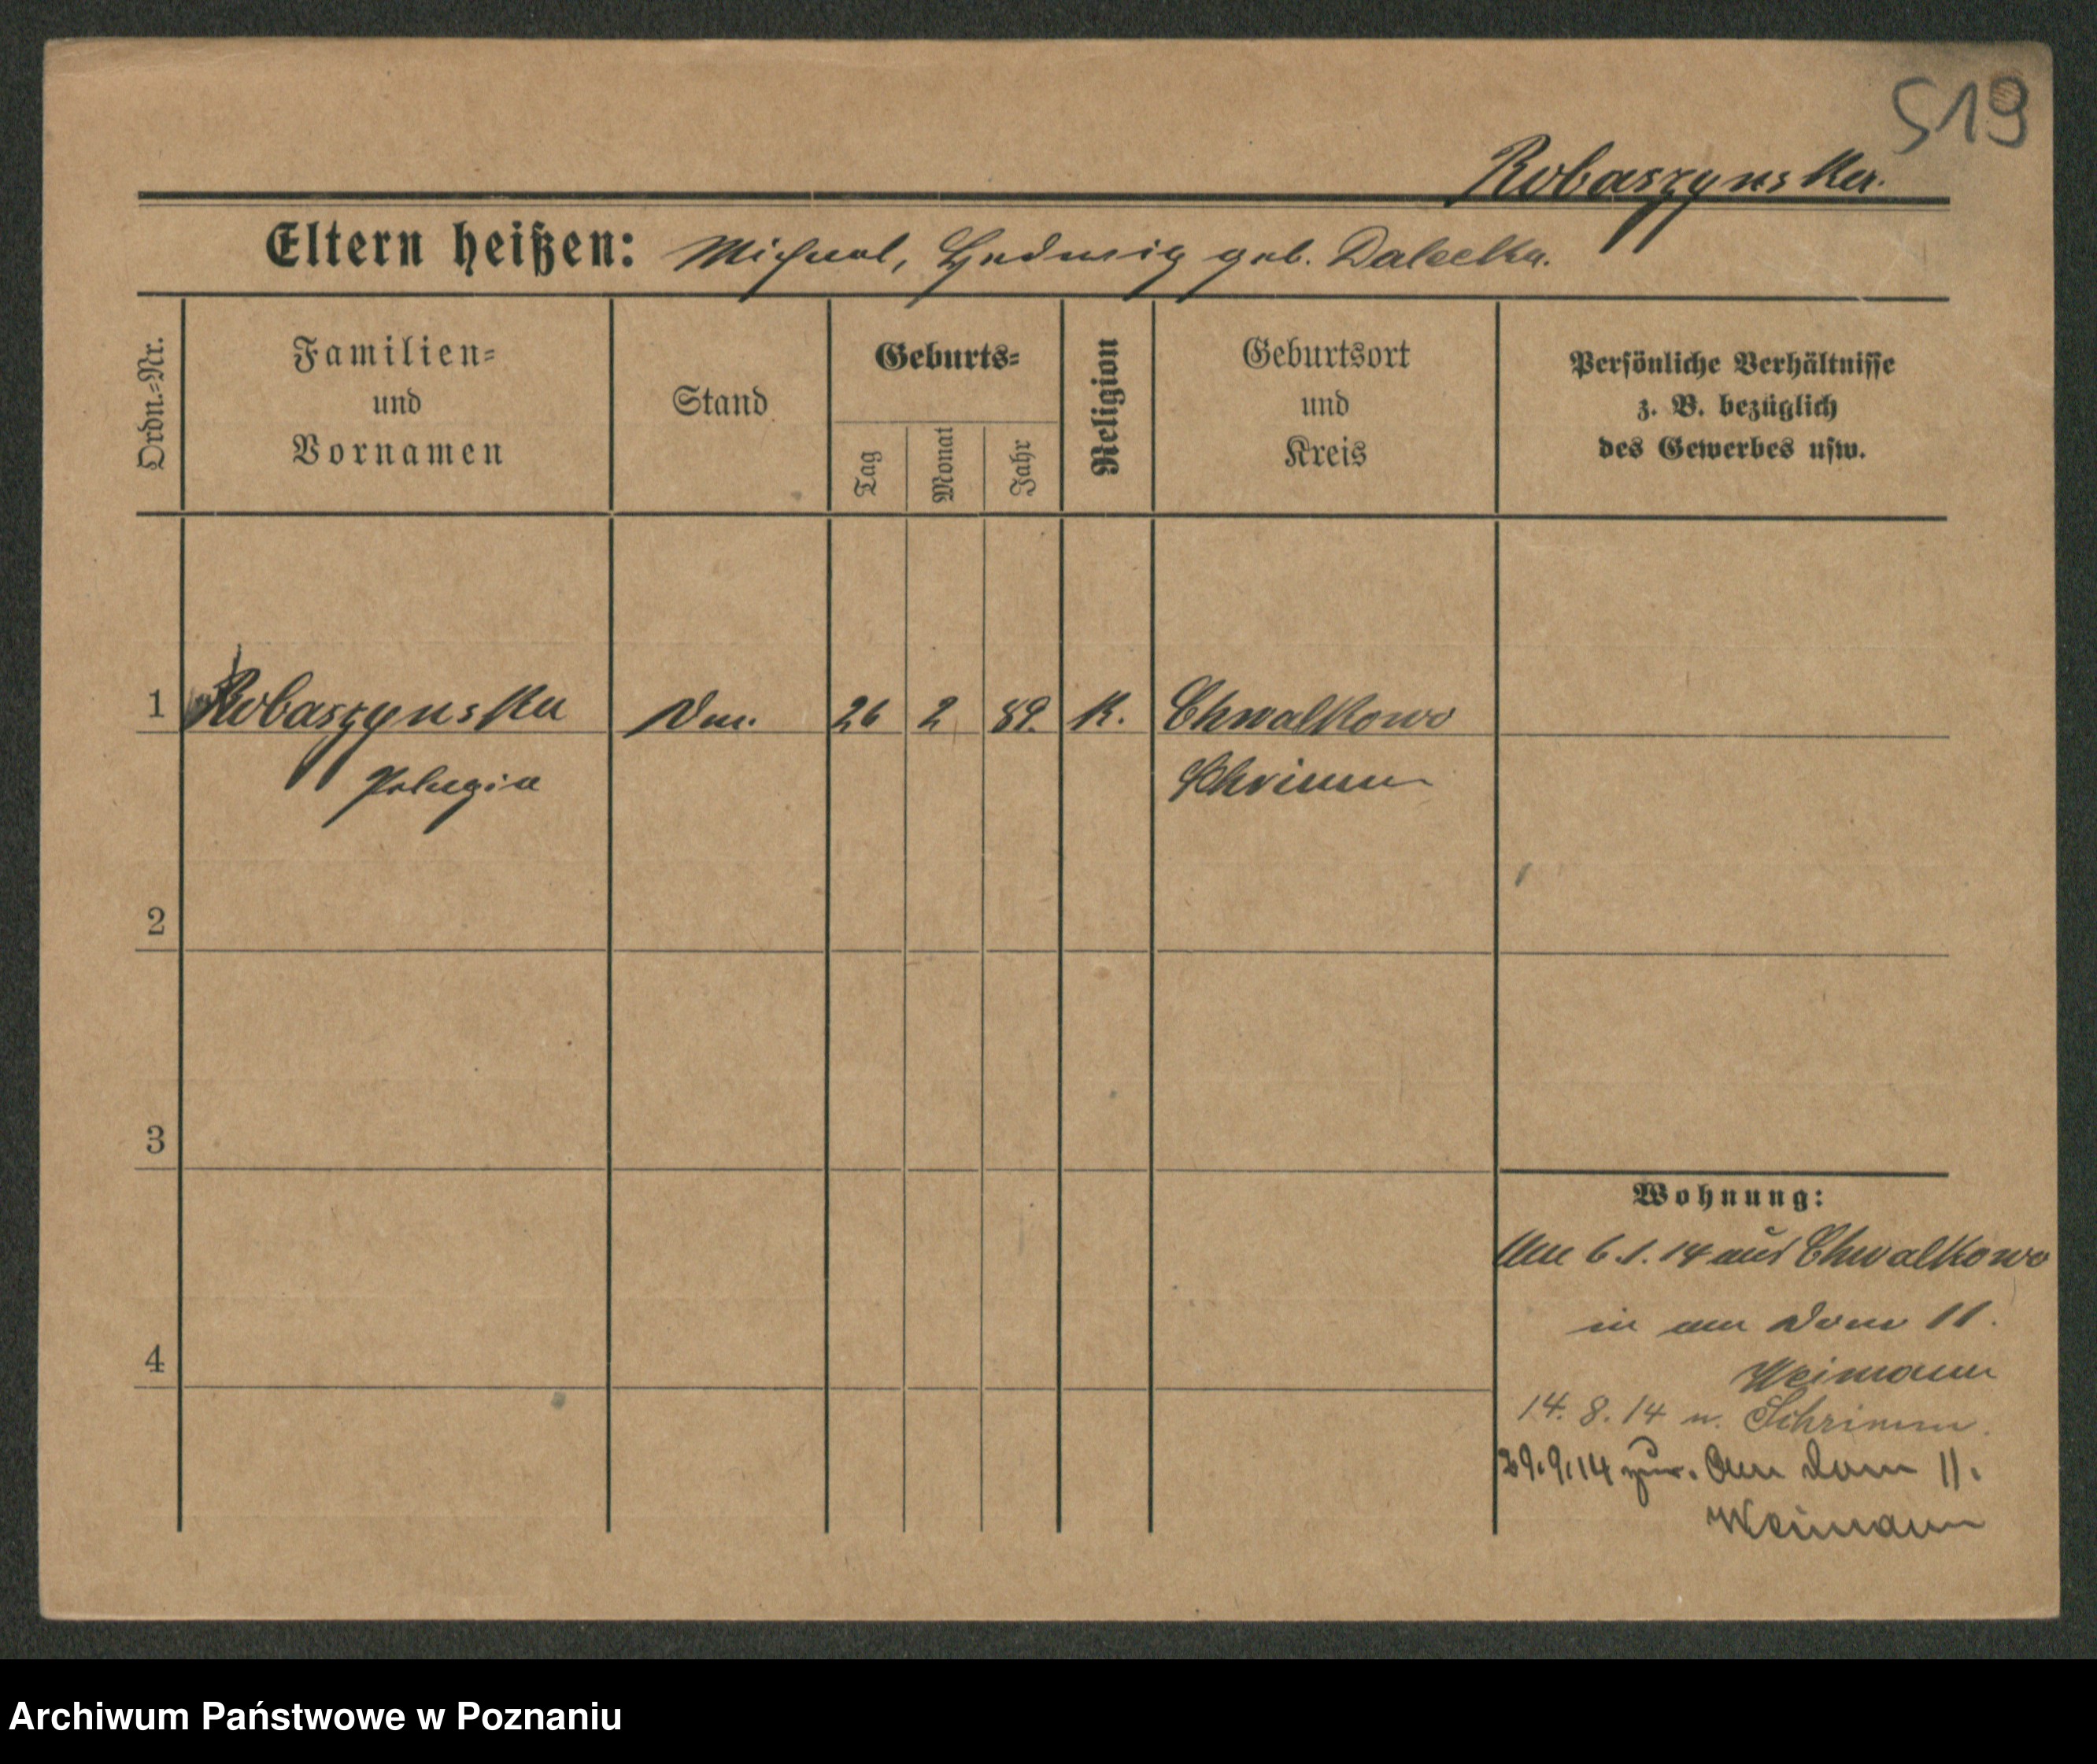 519
Robaszynska.
Eltern heißen: Michael, Hedwig geb. Dalecka.
Ordn.-Nr.
Familien-
und
Vornamen
Stand
Geburts-
Tag
Monat
Jahr
Religion
Geburtsort
und
Kreis
Persönliche Verhältnisse
z. B. bezüglich
des Gewerbes usw.
1 Robaszynska 26 2 89. K. Chwalkowo
Pelagia Schrimm
2
3
4
Wohnung:
6.1.14 aus Chwalkowo
in am Dom 11.
Weimann
14.8.14 n. Schrimm.
29.9.14 zur. Am Dom 11.
Weimann
Archiwum Państwowe w Poznaniu